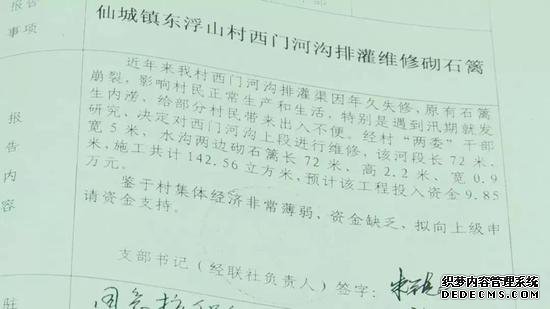 报告
事项
仙城镇东浮山村西门河沟排灌维修砌石篱
近年来我村西门河沟排灌渠因年久失修，原有石篱
崩裂，影响村民正常生产和生活，特别是遇到汛期就发
生内涝、给部分村民带来出入不便。经村“两委”干部
研究，决定对西门河沟上段进行维修，该河段长 72 米、
宽 5 米、水沟两边砌石篱长 72 米、高 2.2 米、宽 0.9
米，施工共计 142.56 立方米，预计该工程投入资金 9.85
万元。
鉴于村集体经济非常薄弱、资金缺乏，拟向上级申
请资金支持。
报
告
内
容
支部书记（经联社负责人）签字：
驻
织梦内容管理系统
DEDECMS.COM